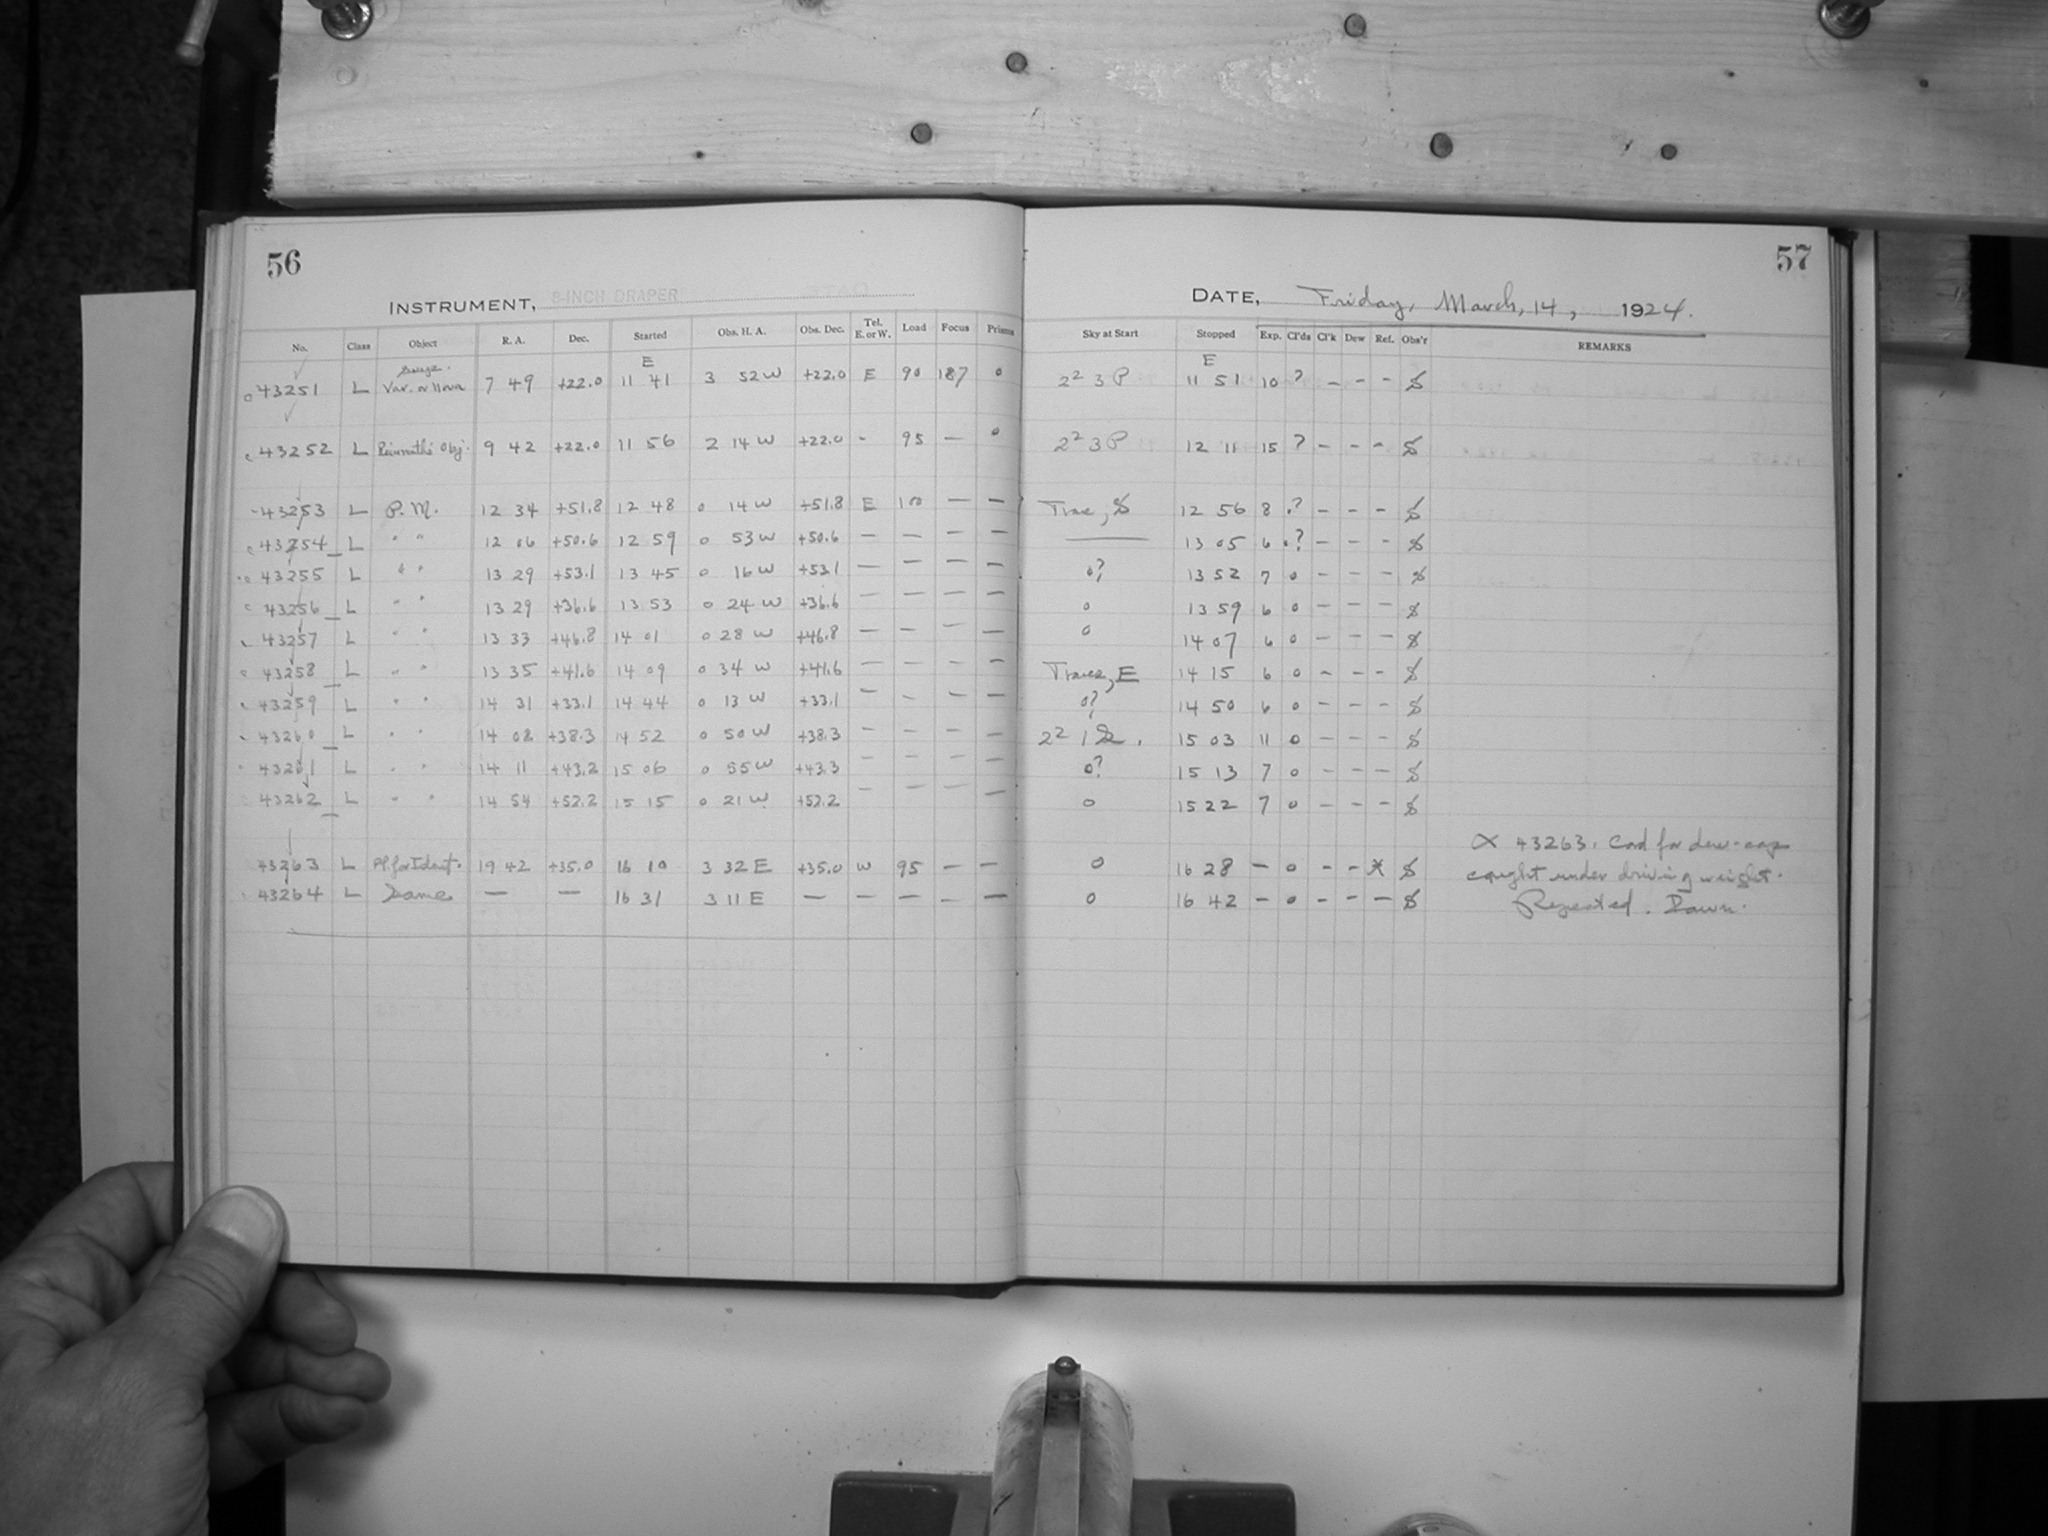 56
INSTRUMENT, 8-INCH DRAPER
No. Class Object R. A. Dec. Started Obs. H. A. Obs. Dec. Tel. E. or W. Load Focus Prisms
E
43251 L Var. or Nova 7 49 +22.0 11 41 3 52 W +22.0 E 90 187 0
43252 L Reinmuth's Obj. 9 42 +22.0 11 56 2 14 W +22.0 - 95 — 0
43253 L P. M. 12 34 +51.8 12 48 0 14 W +51.8 E 100 — —
43254 L " " 12 06 +50.6 12 59 0 53 W +50.6 — — — —
43255 L " " 13 29 +53.1 13 45 0 16 W +53.1 — — — —
43256 L " " 13 29 +36.6 13 53 0 24 W +36.6 — — — —
43257 L " " 13 33 +46.8 14 01 0 28 W +46.8 — — — —
43258 L " " 13 35 +41.6 14 09 0 34 W +41.6 — — — —
43259 L " " 14 31 +33.1 14 44 0 13 W +33.1 — - — —
43260 L " " 14 02 +38.3 14 52 0 50 W +38.3 — — — —
43261 L " " 14 11 +43.2 15 06 0 55 W +43.3 — — — —
43262 L " " 14 54 +52.2 15 15 0 21 W +52.2 — — — —
43263 L Pl. for Ident. 19 42 +35.0 16 10 3 32 E +35.0 W 95 — —
43264 L Same — — 16 31 3 11 E — — — — —
57
DATE, Friday, March, 14, 1924.
Sky at Start Stopped Exp. Cl'ds Cl'k Dew Ref. Obs'r REMARKS
E
2² 3 P 11 51 10 ? — — - S
2² 3 P 12 11 15 ? — — - S
Trace, S 12 56 8 .? — — - S
—— 13 05 6 .? — — - S
0? 13 52 7 0 — — - S
0 13 59 6 0 — — - S
0 14 07 6 0 — — - S
Traces, E 14 15 6 0 — — - S
0? 14 50 6 0 — — - S
2² 1 15 03 11 0 — — - S
0? 15 13 7 0 — — — S
0 15 22 7 0 — — — S
0 16 28 — 0 - - * S
0 16 42 — 0 - - — S
43263. Cord for dew-cap
caught under driving weight.
Repeated. Dawn.